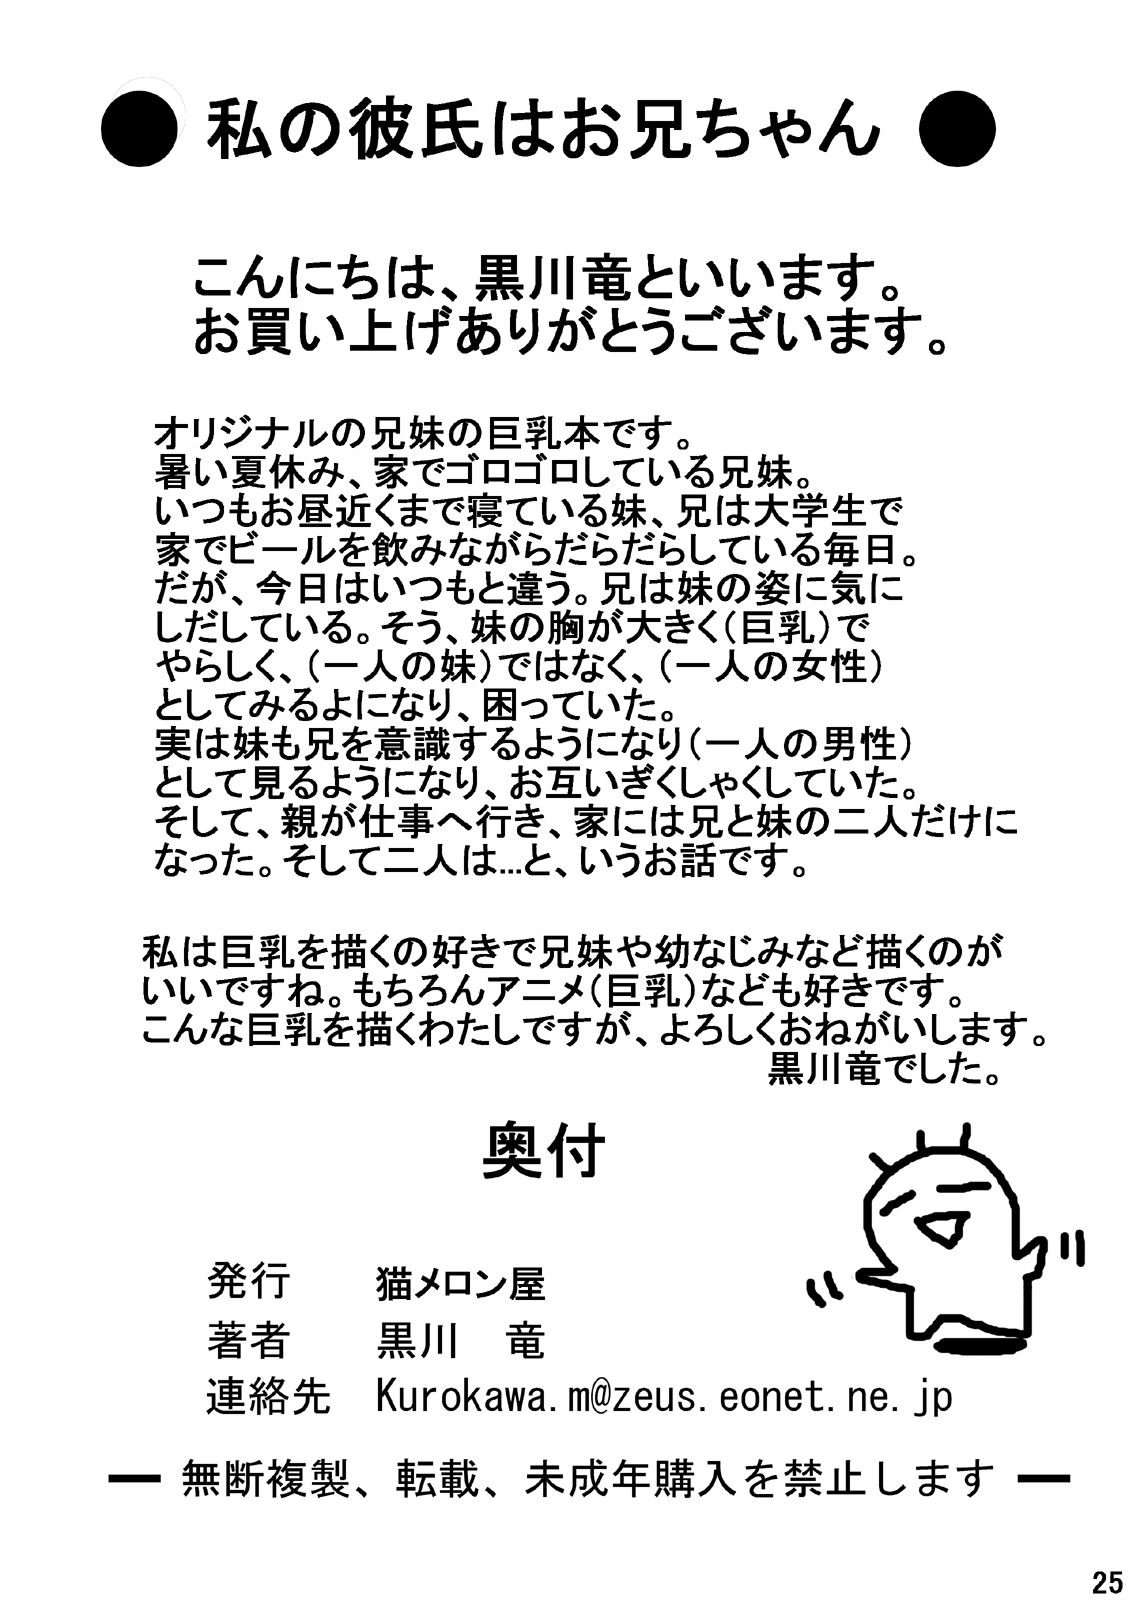 ● 私の彼氏はお兄ちゃん ●
こんにちは、黒川竜といいます。
お買い上げありがとうございます。
オリジナルの兄妹の巨乳本です。
暑い夏休み、家でゴロゴロしている兄妹。
いつもお昼近くまで寝ている妹、兄は大学生で
家でビールを飲みながらだらだらしている毎日。
だが、今日はいつもと違う。兄は妹の姿に気に
しだしている。そう、妹の胸が大きく（巨乳）で
やらしく、（一人の妹）ではなく、（一人の女性）
としてみるよになり、困っていた。
実は妹も兄を意識するようになり（一人の男性）
として見るようになり、お互いぎくしゃくしていた。
そして、親が仕事へ行き、家には兄と妹の二人だけに
なった。そして二人は...と、いうお話です。
私は巨乳を描くの好きで兄妹や幼なじみなど描くのが
いいですね。もちろんアニメ（巨乳）なども好きです。
こんな巨乳を描くわたしですが、よろしくおねがいします。
黒川竜でした。
奥付
発行　猫メロン屋
著者　黒川　竜
連絡先　Kurokawa.m@zeus.eonet.ne.jp
― 無断複製、転載、未成年購入を禁止します ―
25